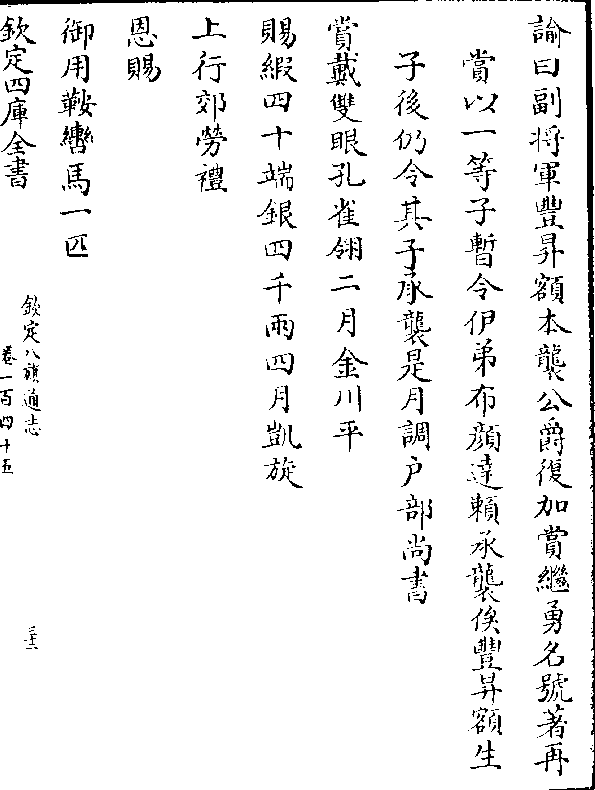 諭曰副將軍豐昇額本襲公爵復加賞繼勇名號著再
賞以一等子暫令伊弟布顔達賴承襲俟豐昇額生
子後仍令其子承襲是月調户部尚書
賞戴雙眼孔雀翎二月金川平
賜緞四十端銀四千兩四月凱旋
上行郊勞禮
恩賜
御用鞍轡馬一匹
欽定四庫全書
欽定八旗通志
卷一百四十五
三十二